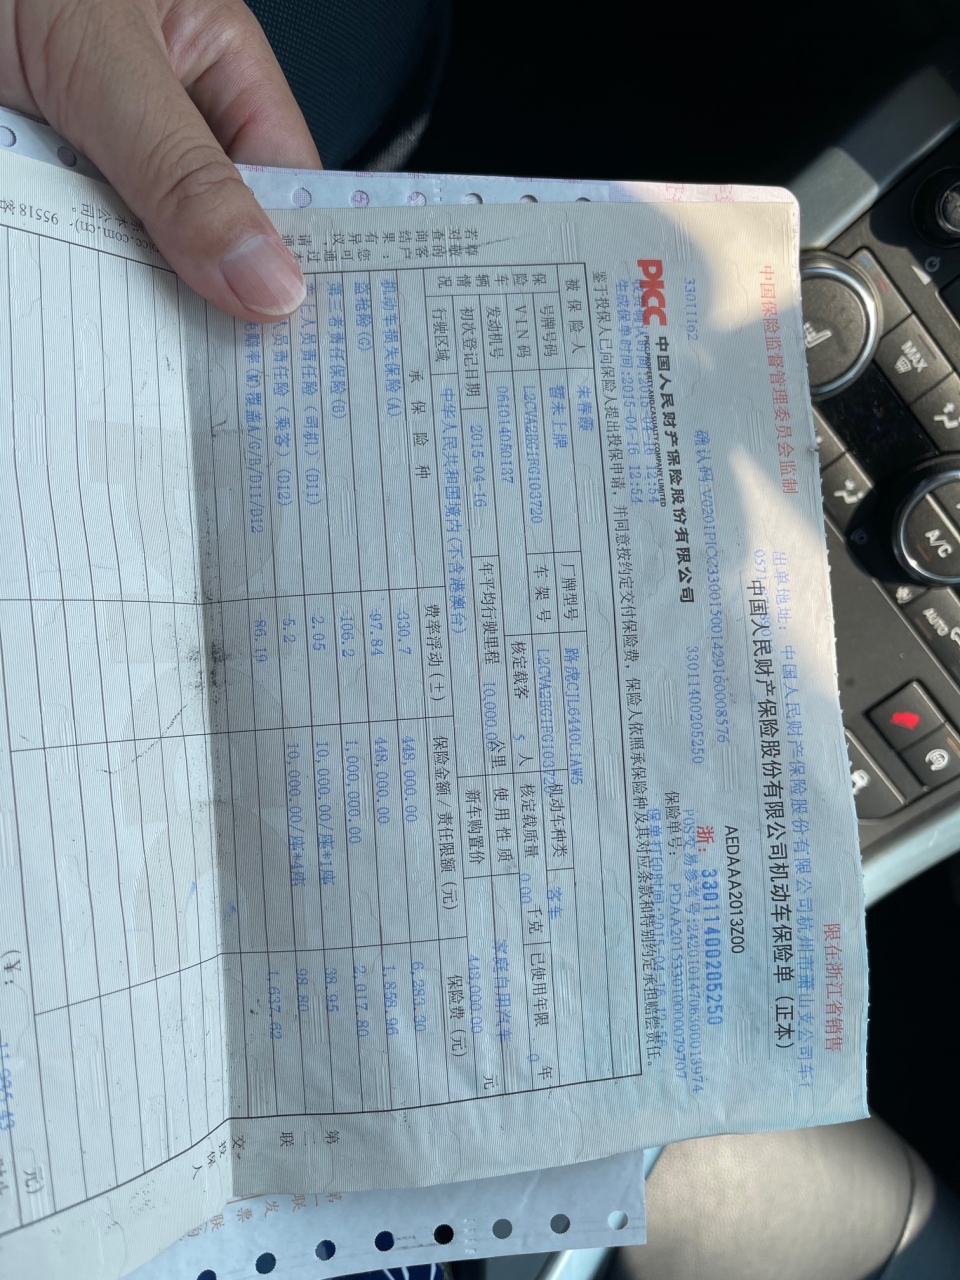 中国保险监督管理委员会监制
限在浙江省销售
出单地址: 中国人民财产保险股份有限公司杭州市萧山支公司车行
0571
中国人民财产保险股份有限公司机动车保险单（正本）
AEDAAA2013Z00
33011162
确认码:V0201PICC330015001429160008576
浙: 33011400205250
33011400205250
POS交易参考号:242010147063000139​74
保险单号: PDAA201533010000079707
PICC 中国人民财产保险股份有限公司
PICC PROPERTY AND CASUALTY COMPANY LIMITED
投保确认时间:2015-04-16 12:54
生成保单时间:2015-04-16 12:54
保单打印时间:2015-04-16 12:54
鉴于投保人已向保险人提出投保申请，并同意按约定交付保险费，保险人依照承保险种及其对应条款和特别约定承担赔偿责任。
被保险人 朱春霞
保险车辆情况
号牌号码 暂未上牌 厂牌型号 路虎CJL6440L1AW5
VIN码 L2CVA2BG1FG103720 车架号 L2CVA2BG1FG103720 机动车种类 客车
发动机号 0610140S0187 核定载客 5 人 核定载质量 0.00 千克 已使用年限 0 年
初次登记日期 2015-04-16 年平均行驶里程 10,000.00 公里 使用性质 家庭自用汽车
行驶区域 中华人民共和国境内(不含港澳台) 新车购置价 448,000.00 元
承保险种 费率浮动（±） 保险金额/责任限额（元） 保险费（元）
机动车损失保险(A) -330.7 448,000.00 6,283.30
盗抢险(G) -97.84 448,000.00 1,858.96
第三者责任保险(B) -106.2 1,000,000.00 2,017.80
人员责任险（司机）(D11) -2.05 10,000.00/座*1座 38.95
人员责任险（乘客）(D12) -5.2 10,000.00/座*4座 98.80
免赔率(M)覆盖A/G/B/D11/D12 -86.19 1,637.62
（￥: 11,935.43 元）
若对查询结果有异议，请通
尊敬的客户：您可通过本
95518 客
picc.com.cn)、
本公司。
第二联
交投保人
第一联
发票联